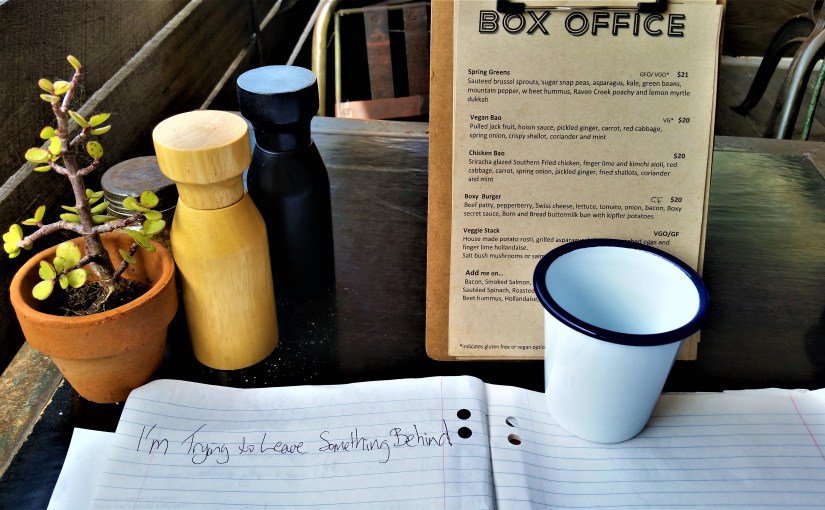 BOX OFFICE
Spring Greens GFO/ VGO* $21
Sauteed brussel sprouts, sugar snap peas, asparagus, kale, green beans,
mountain pepper, w beet hummus, Raven Creek poachy and lemon myrtle
dukkah
Vegan Bao VG* $20
Pulled Jack fruit, hoisin sauce, pickled ginger, carrot, red cabbage,
spring onion, crispy shallot, coriander and mint
Chicken Bao $20
Sriracha glazed Southern Fried chicken, finger lime and kimchi aioli, red
cabbage, carrot, spring onion, pickled ginger, fried shallots, coriander
and mint
Boxy Burger GF $20
Beef patty, pepperberry, Swiss cheese, lettuce, tomato, onion, bacon, Boxy
secret sauce, Born and Bread buttermilk bun with kipfler potatoes
Veggie Stack VGO/GF
House made potato rosti, grilled eggs and
finger lime hollandaise.
Salt bush mushrooms or
Add me on...
Bacon, Smoked Salmon,
Sautéed Spinach, Roasted
Beet hummus, Hollandaise,
*indicates gluten free or vegan
I'm Trying to Leave Something Behind